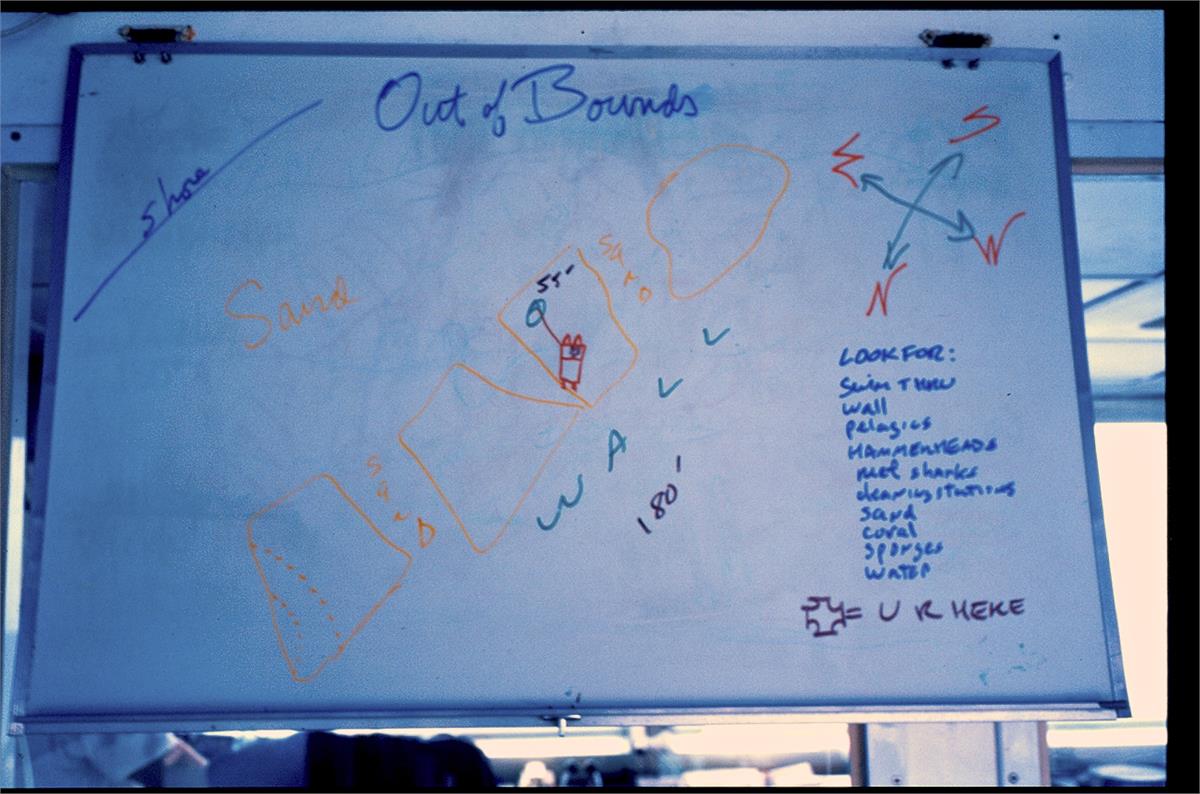 Out of Bounds
Shore
S
E
W
N
Sand
SAND
55'
SAND
WALL
180'
LOOK FOR:
Swim THRU
wall
pelagics
HAMMERHEADS
reef sharks
cleaning stations
sand
coral
sponges
WATER
= U R HERE